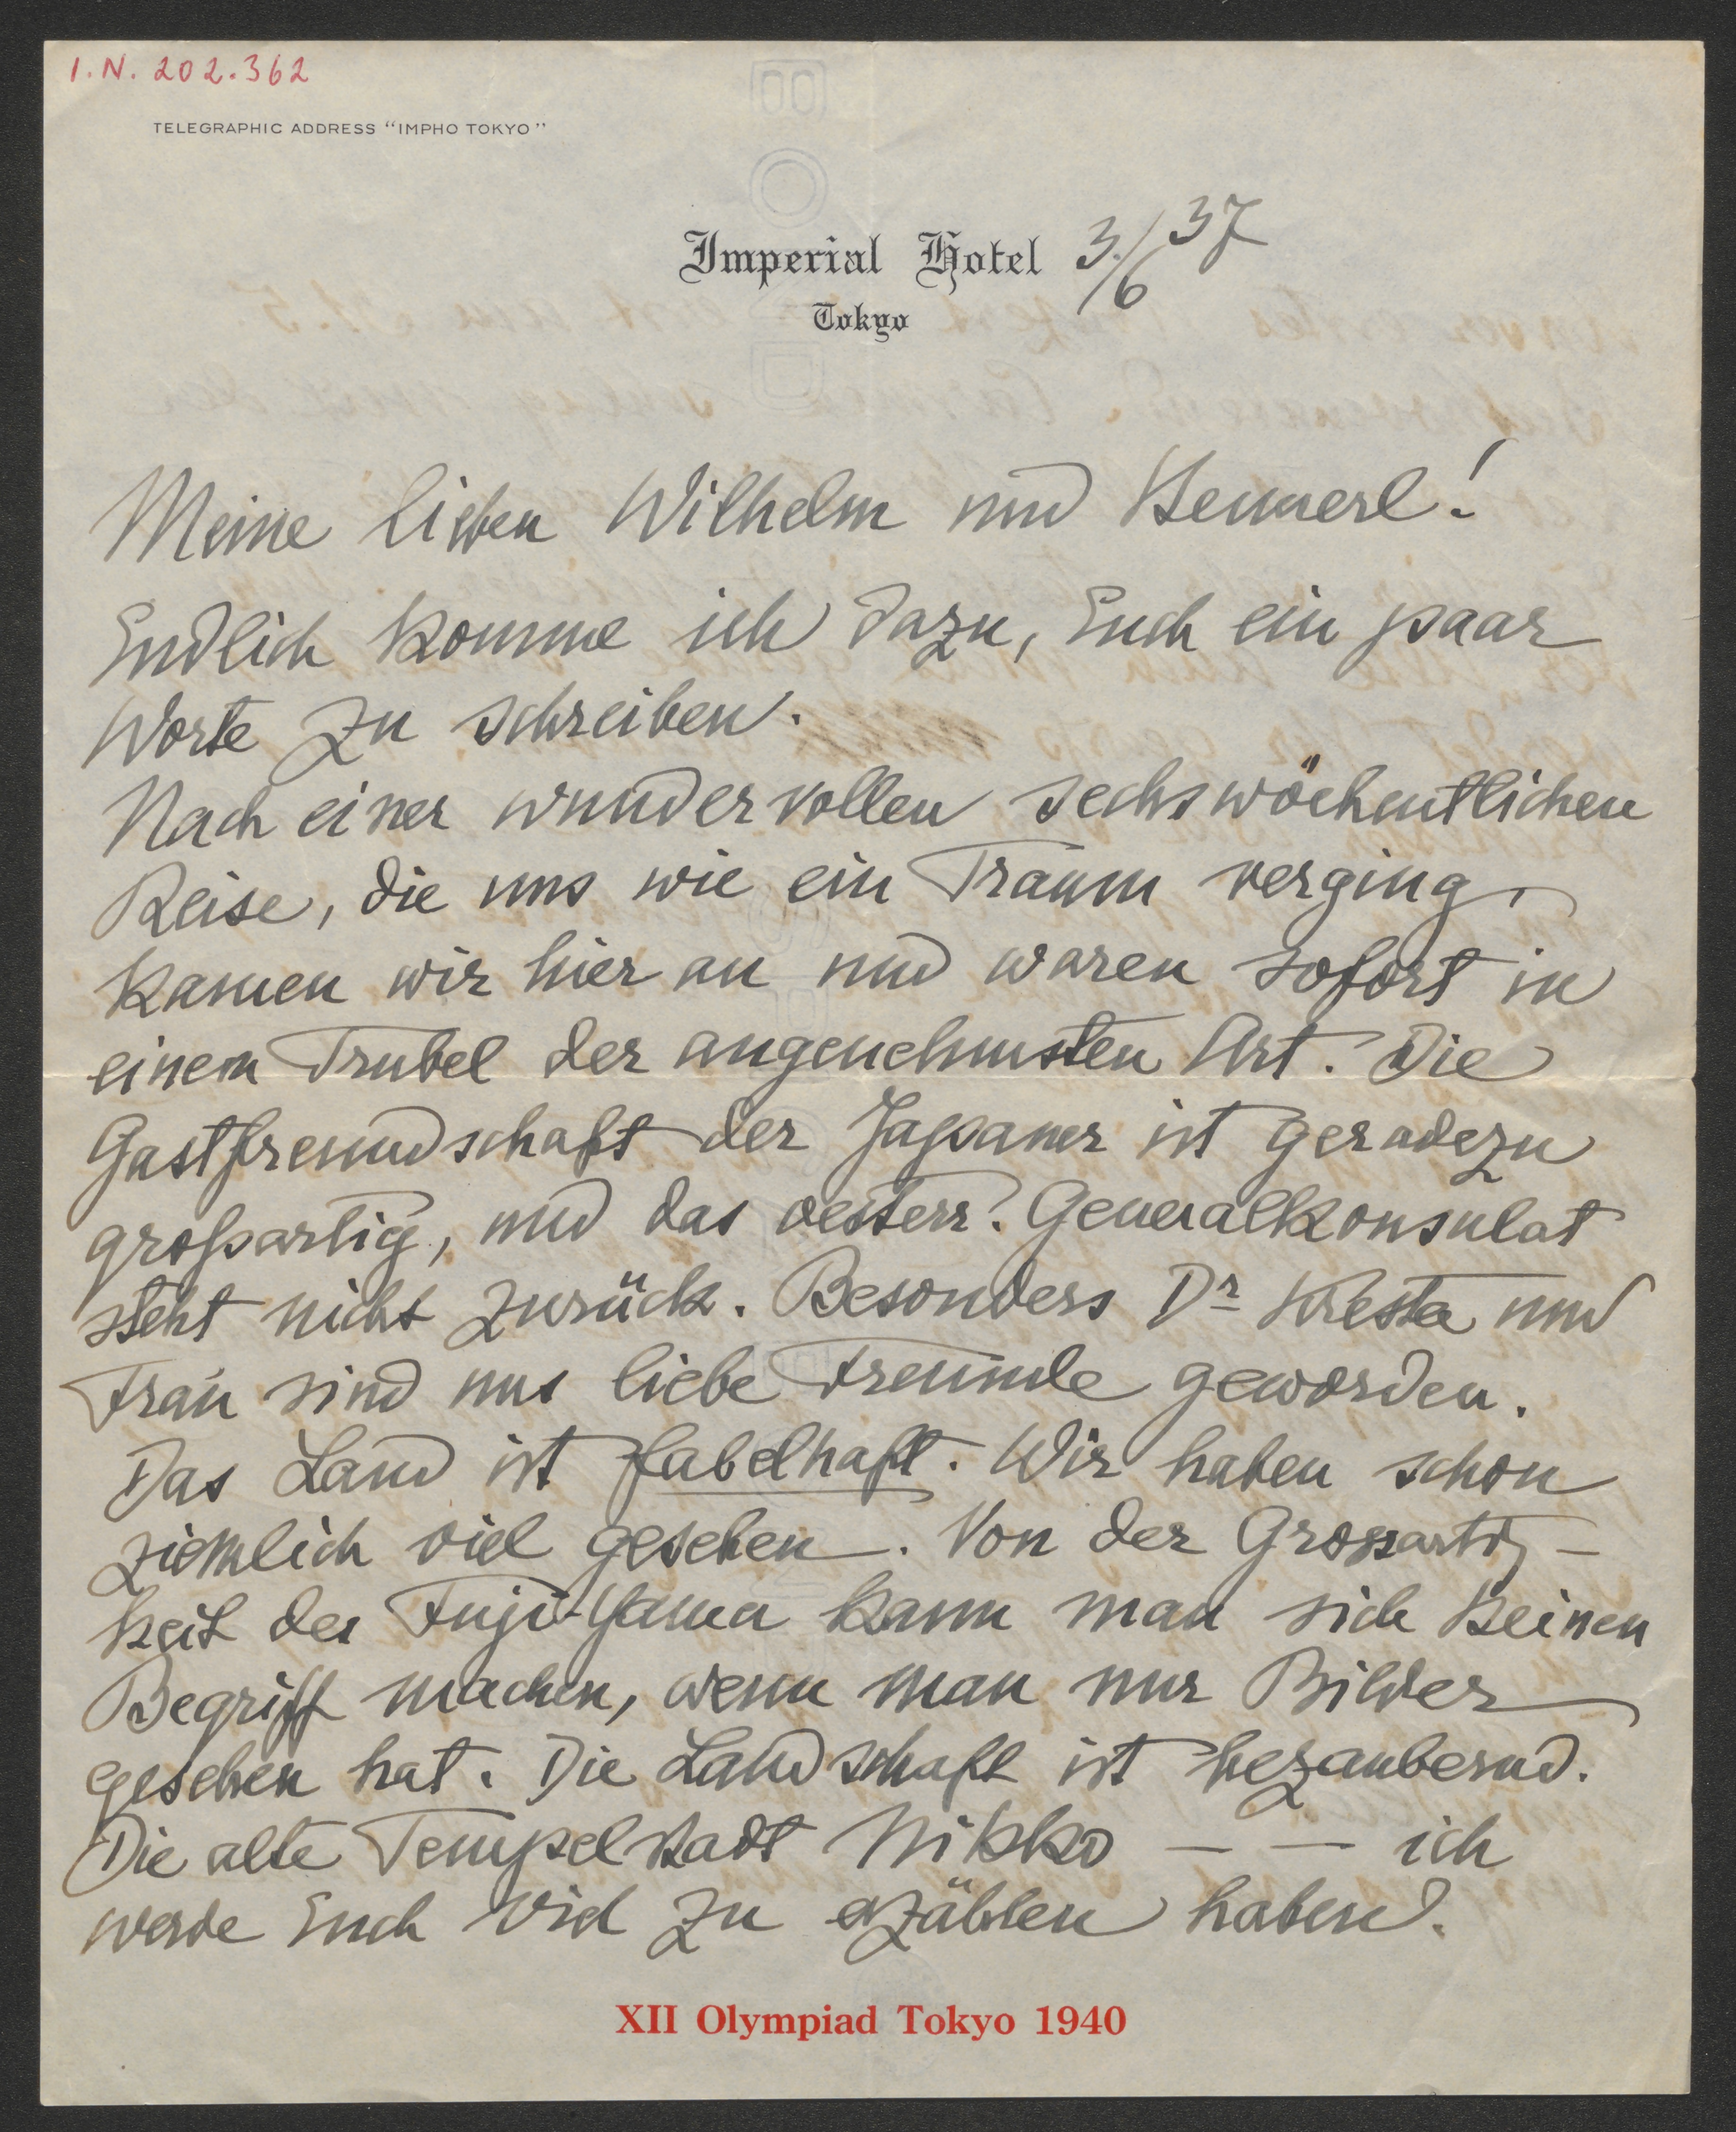 I.N. 202.362
TELEGRAPHIC ADDRESS “IMPHO TOKYO”
Imperial Hotel 3./6 37
Tokyo
Meine lieben Wilhelm und
Endlich komme ich dazu, Euch ein paar
Worte zu schreiben.
Nach einer wundervollen sechswöchentlichen
Reise, die uns wie ein Traum verging,
kamen wir hier an und waren sofort in
einem Trubel der angenehmsten Art. Die
Gastfreundschaft der Japaner ist geradezu
großartig, und das oesterr. Generalkonsulat
steht nicht zurück. Besonders Dr Kresta und
Frau sind uns liebe Freunde geworden.
Das Land ist fabelhaft. Wir haben schon
ziemlich viel gesehen. Von der Grossartig-
keit des Fuji-Yama kann man sich keinen
Begriff machen, wenn man nur Bilder
gesehen hat. Die Landschaft ist bezaubernd.
Die alte Tempelstadt Nikko — — ich
werde Euch viel zu erzählen haben.
XII Olympiad Tokyo 1940